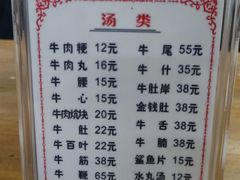 汤类
牛肉粳 12元 牛尾 55元
牛肉丸 16元 牛什 35元
牛腰 15元 牛肚岸 38元
牛心 15元 金钱肚 38元
牛肉炕块 20元 牛舌 38元
牛肚 22元 牛腩 38元
牛百叶 22元 鲨鱼片 15元
牛筋 38元 水丸汤 12元
牛鞭 65元